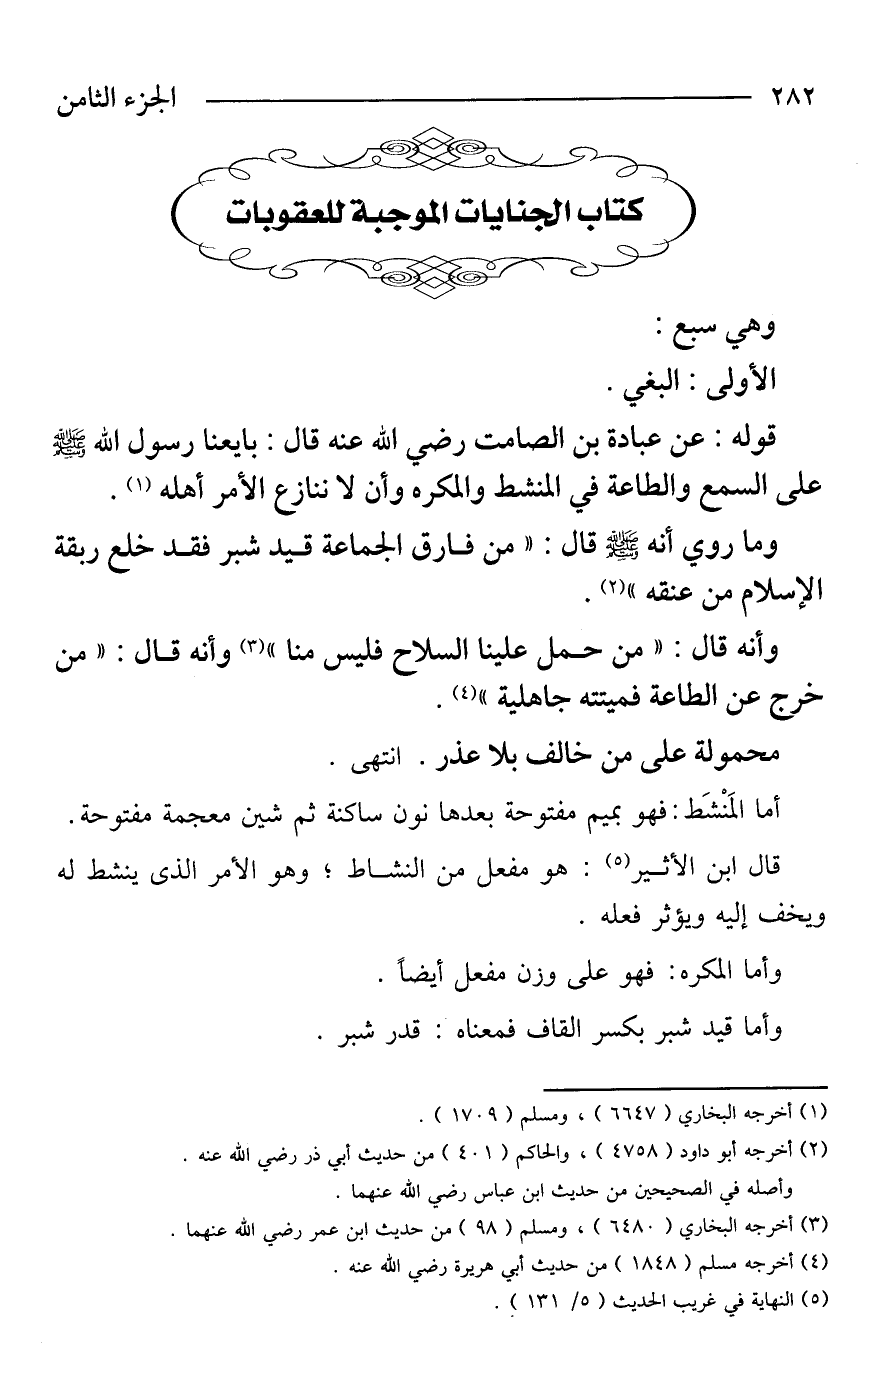 ٢٨٢ الجزء الثامن
كتاب الجنايات الموجبة للعقوبات
وهي سبع :
الأولى : البغي .
قوله : عن عبادة بن الصامت رضي الله عنه قال : بايعنا رسول الله ﷺ
على السمع والطاعة في المنشط والمكره وأن لا ننازع الأمر أهله (١) .
وما روي أنه ﷺ قال : « من فارق الجماعة قيد شبر فقد خلع ربقة
الإسلام من عنقه »(٢) .
وأنه قال : « من حمل علينا السلاح فليس منا »(٣) وأنه قال : « من
خرج عن الطاعة فميتته جاهلية »(٤) .
محمولة على من خالف بلا عذر . انتهى .
أما المَنْشَط : فهو بميم مفتوحة بعدها نون ساكنة ثم شين معجمة مفتوحة .
قال ابن الأثير(٥) : هو مفعل من النشاط ؛ وهو الأمر الذى ينشط له
ويخف إليه ويؤثر فعله .
وأما المكره : فهو على وزن مفعل أيضاً .
وأما قيد شبر بكسر القاف فمعناه : قدر شبر .
(١) أخرجه البخاري ( ٦٦٤٧ ) ، ومسلم ( ١٧٠٩ ) .
(٢) أخرجه أبو داود ( ٤٧٥٨ ) ، والحاكم ( ٤٠١ ) من حديث أبي ذر رضي الله عنه .
وأصله في الصحيحين من حديث ابن عباس رضي الله عنهما .
(٣) أخرجه البخاري ( ٦٤٨٠ ) ، ومسلم ( ٩٨ ) من حديث ابن عمر رضي الله عنهما .
(٤) أخرجه مسلم ( ١٨٤٨ ) من حديث أبي هريرة رضي الله عنه .
(٥) النهاية في غريب الحديث ( ٥/ ١٣١ ) .